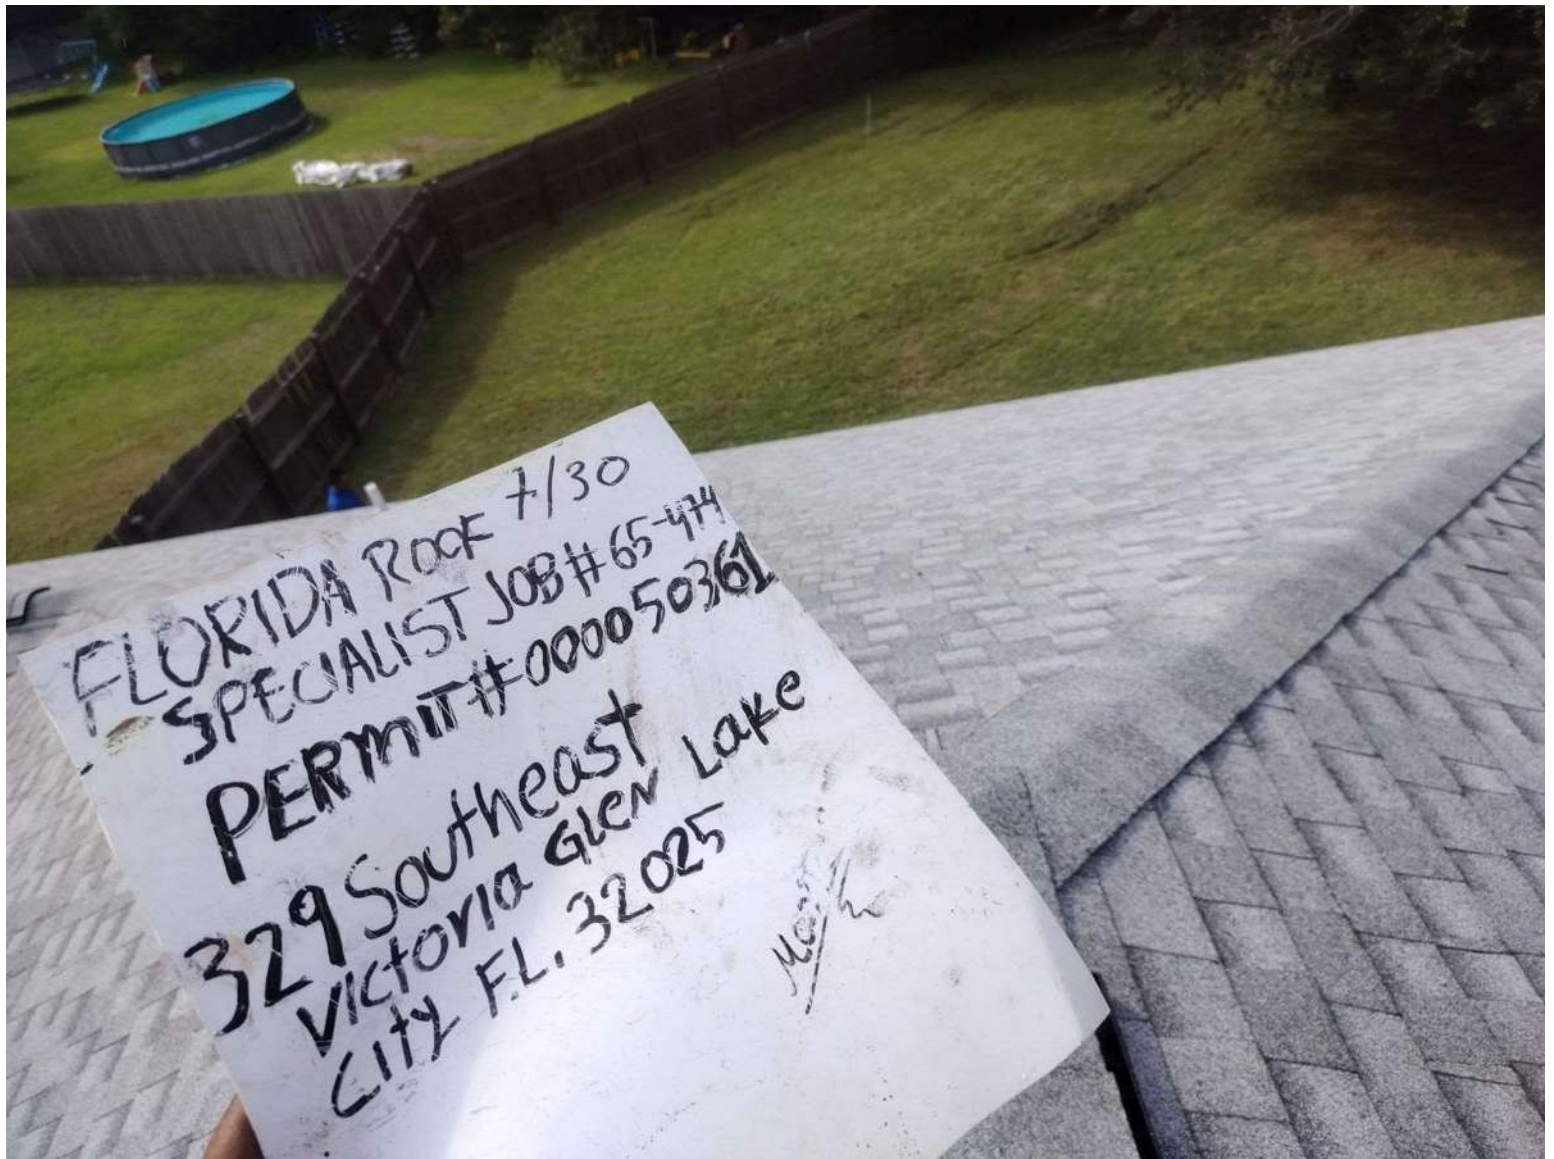 FLORIDA ROOF 7/30
SPECIALIST JOB # 65-474
PERMIT # 000050361
329 Southeast
VICTORIA GLEN Lake
CITY FL. 32025